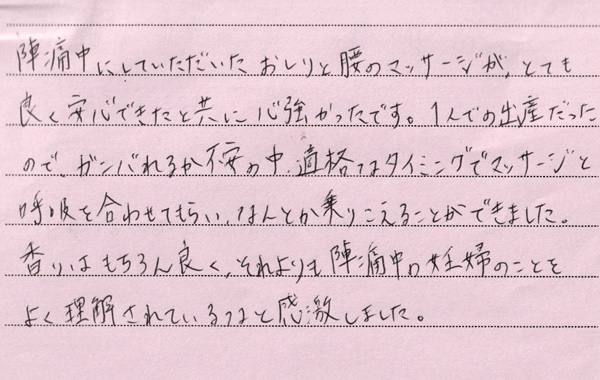 陣痛中にしていただいたおしりと腰のマッサージが、とても
良く安心できたと共に心強かったです。1人での出産だった
ので、ガンバれるか不安の中、適格なタイミングでマッサージと
呼吸を合わせてもらい、なんとか乗りこえることができました。
香りはもちろん良く、それよりも陣痛中の妊婦のことを
よく理解されているなと感激しました。